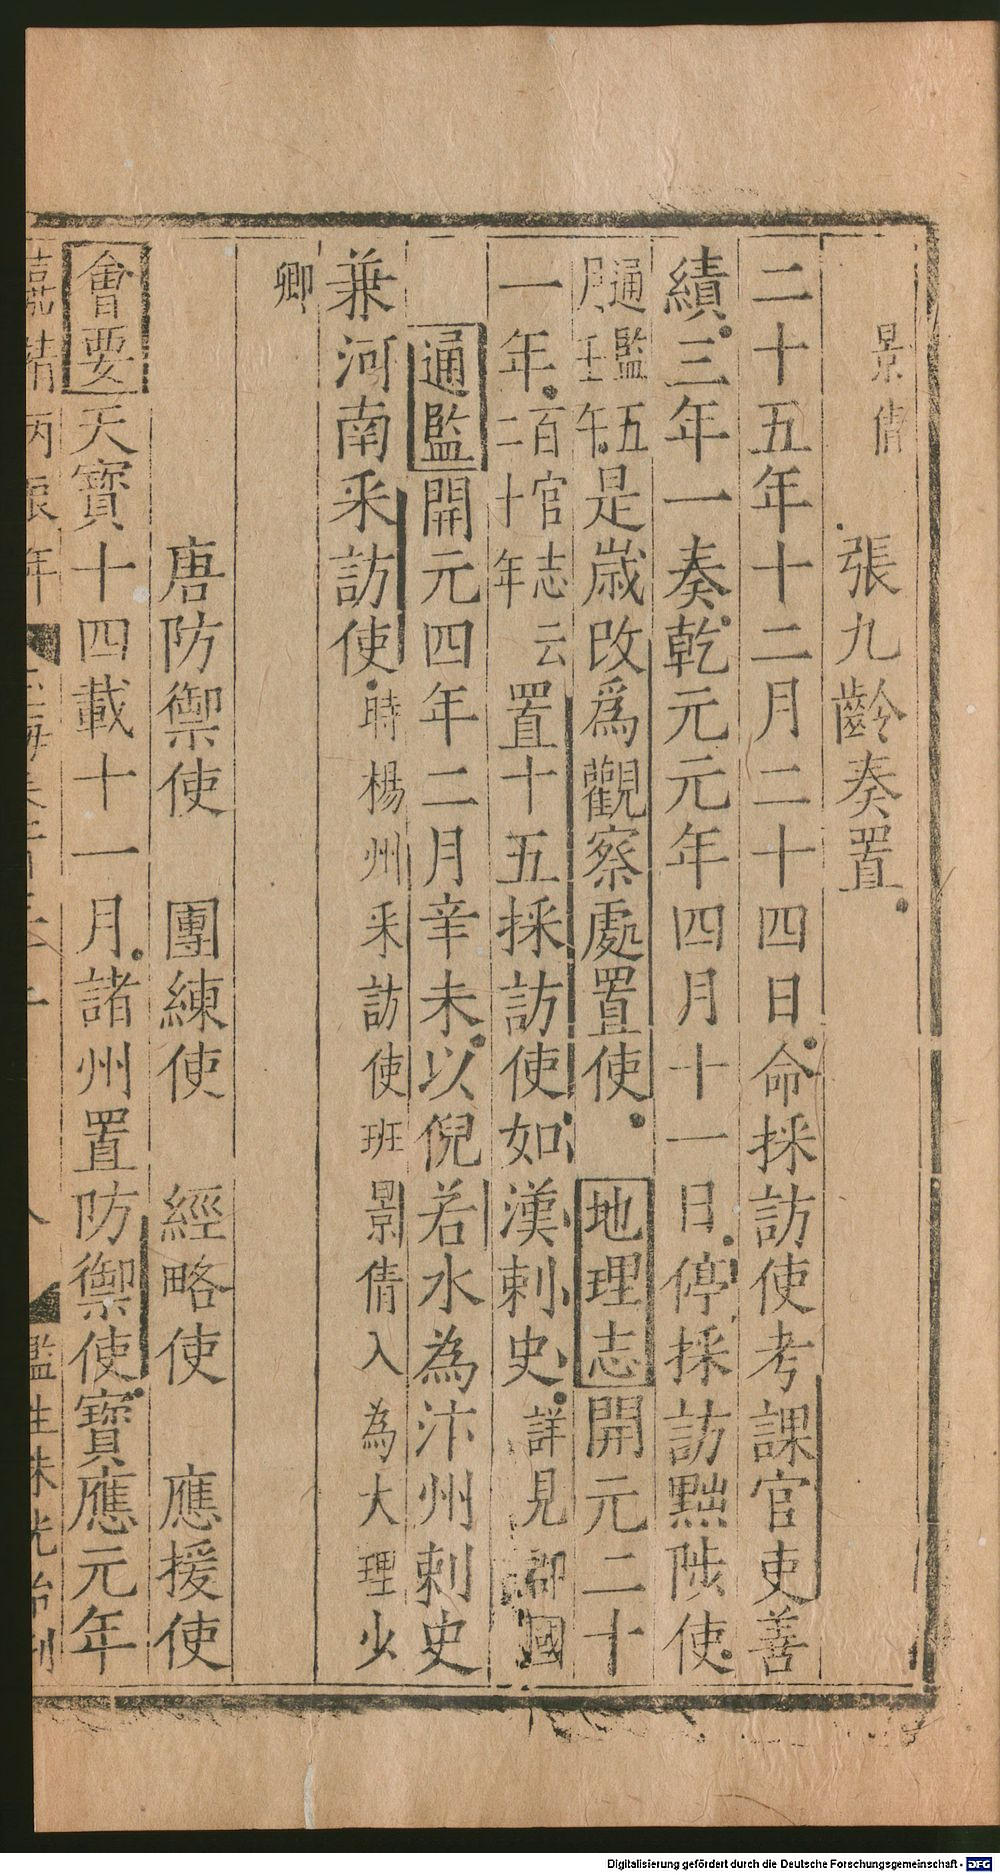 景倩 張九齡奏置
二十五年十二月二十四日命採訪使考課官吏善
績三年一奏乾元元年四月十一日停採訪黜陟使
通鑑五月壬午是歲改爲觀察處置使 地理志開元二十
一年百官志云二十年置十五採訪使如漢刺史詳見郡國
通鑑開元四年二月辛未以倪若水為汴州刺史
兼河南采訪使時楊州采訪使班景倩入為大理少
卿
唐防禦使 團練使 經略使 應援使
會要天寶十四載十一月諸州置防禦使寶應元年
嘉靖丙辰年
Digitalisierung gefördert durch die Deutsche Forschungsgemeinschaft - DFG